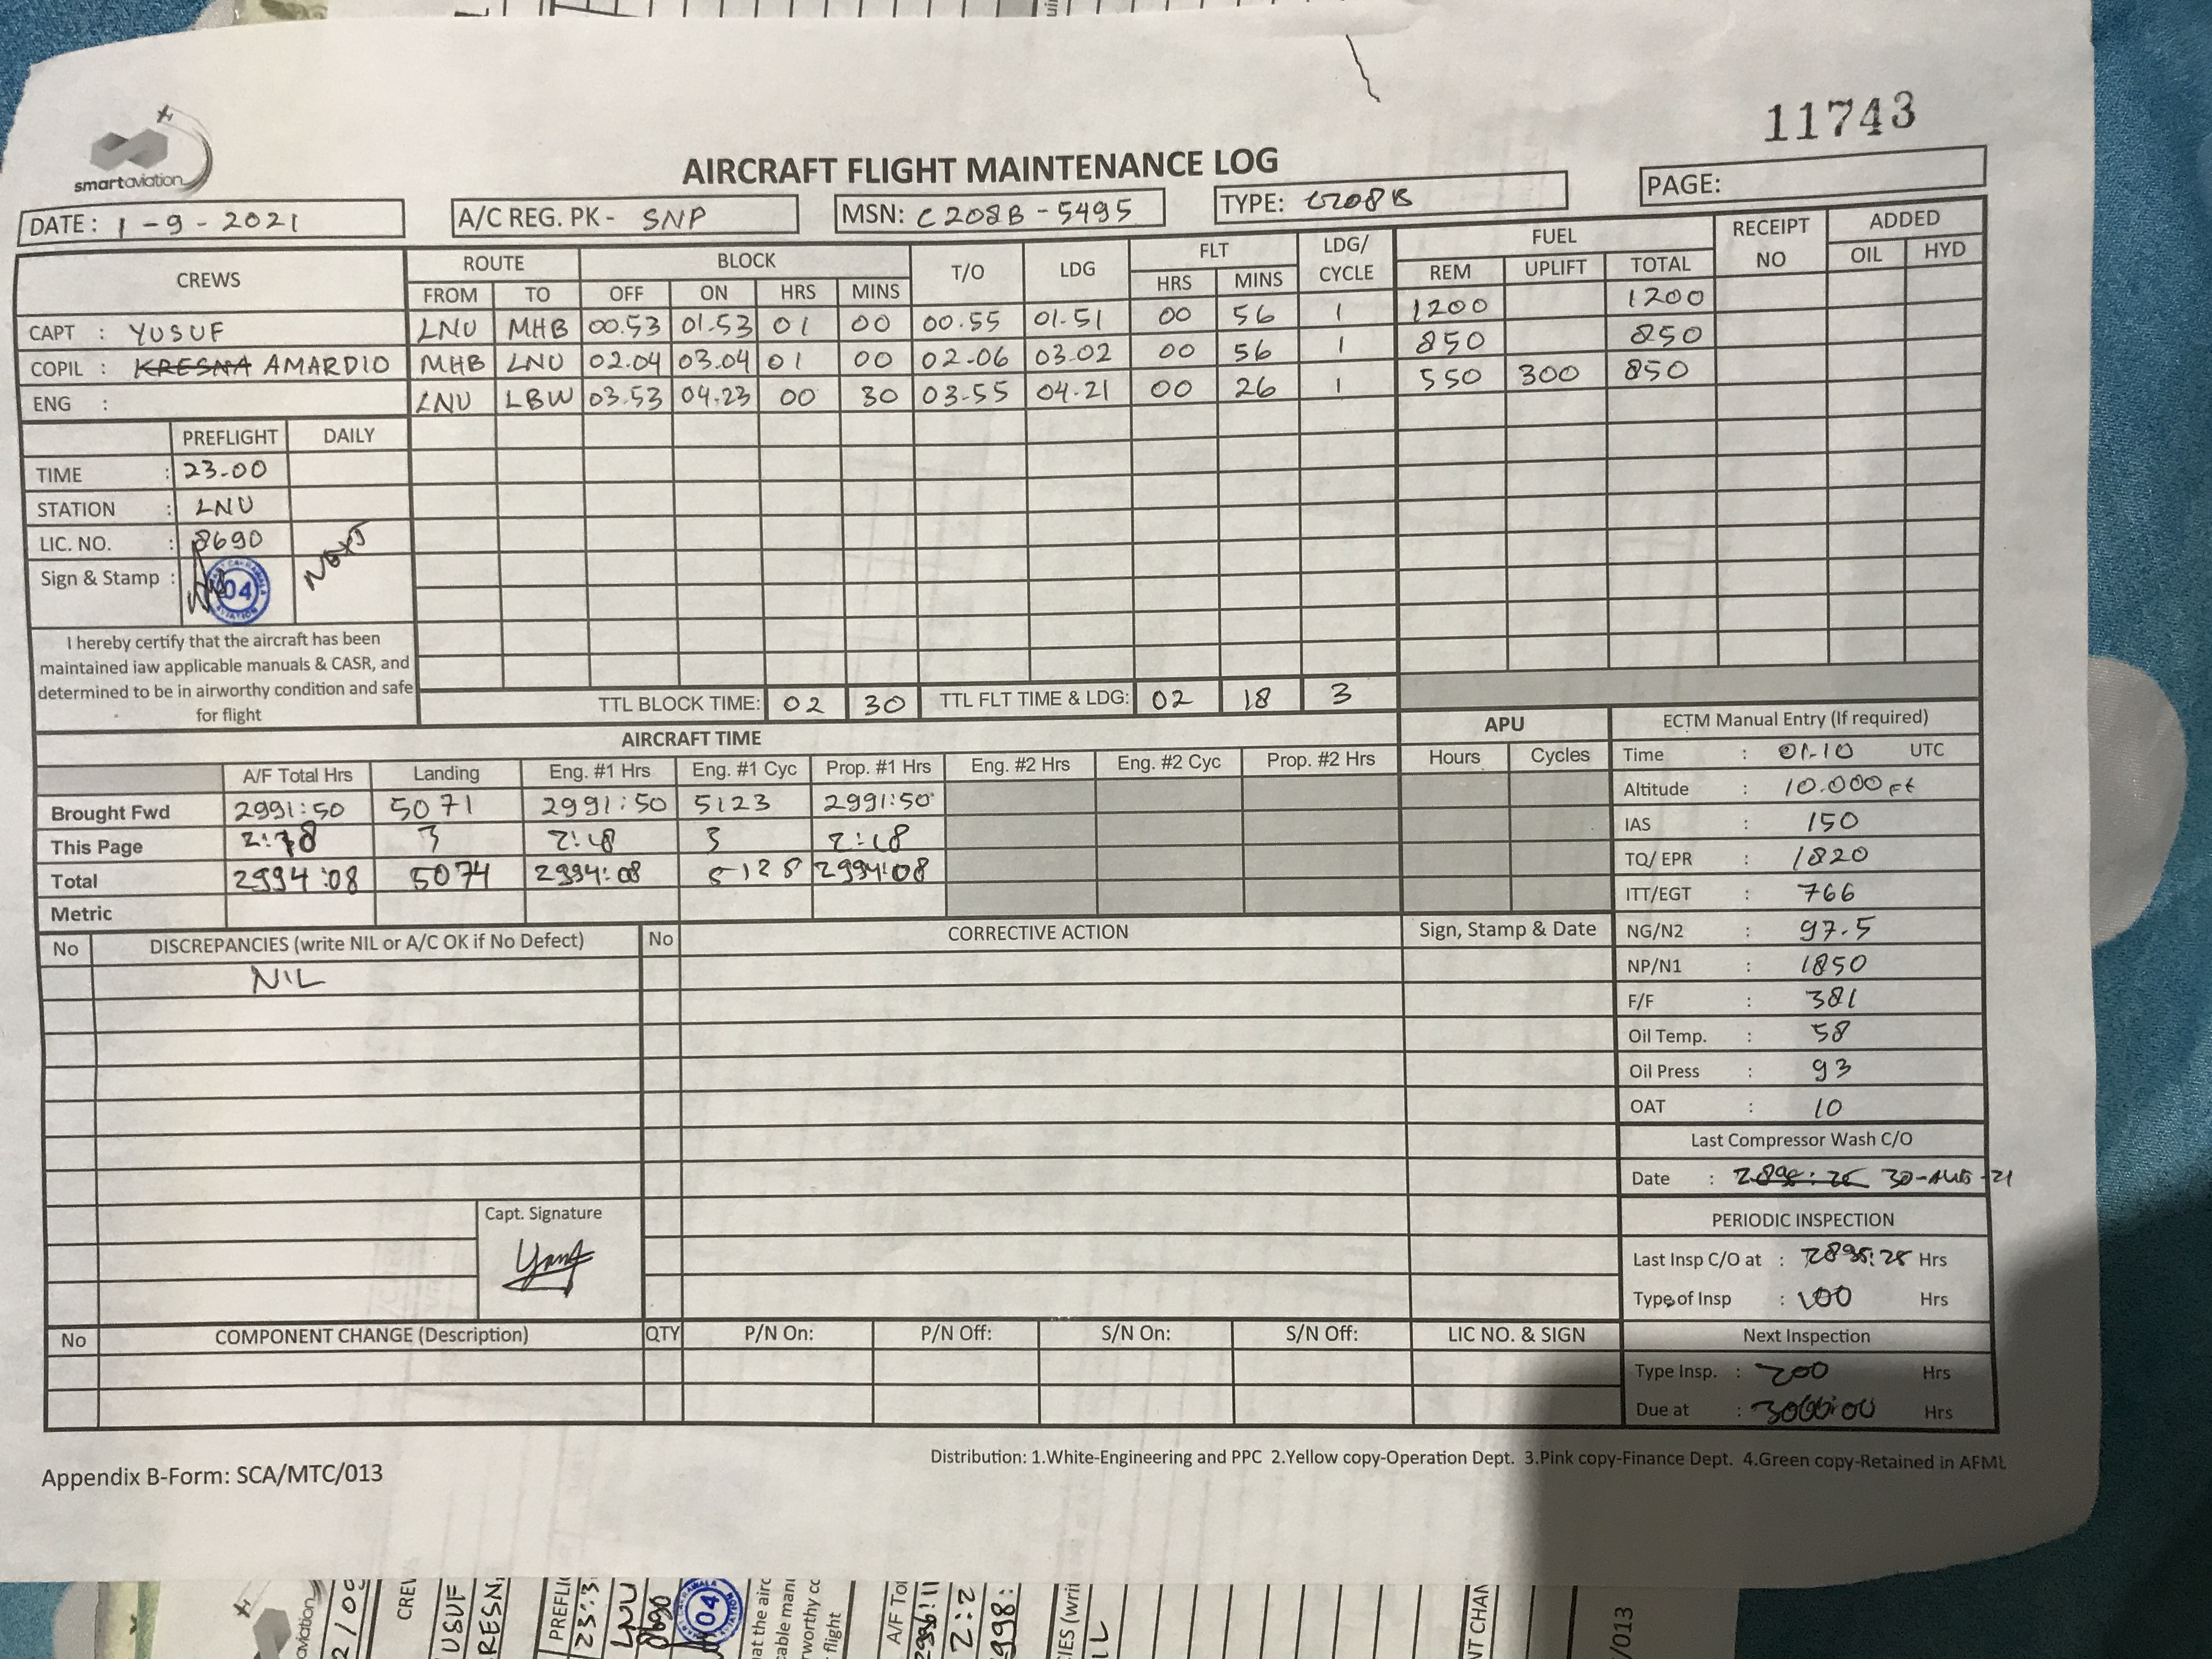 11743
smartaviation
AIRCRAFT FLIGHT MAINTENANCE LOG
DATE : 1-9-2021 A/C REG. PK - SNP MSN: C208B-5495 TYPE: C208B PAGE:
CREWS ROUTE BLOCK T/O LDG FLT LDG/ CYCLE FUEL RECEIPT NO ADDED
FROM TO OFF ON HRS MINS HRS MINS REM UPLIFT TOTAL OIL HYD
CAPT : YUSUF LNU MHB 00.53 01.53 01 00 00.55 01.51 00 56 1 1200 1200
COPIL : KRESNA AMARDIO MHB LNU 02.04 03.04 01 00 02-06 03.02 00 56 1 850 850
ENG : LNU LBW 03.53 04.23 00 30 03-55 04-21 00 26 1 550 300 850
PREFLIGHT DAILY
TIME : 23-00
STATION : LNU
LIC. NO. : 8690
Sign & Stamp : 04 NEXT
I hereby certify that the aircraft has been
maintained iaw applicable manuals & CASR, and
determined to be in airworthy condition and safe
for flight
TTL BLOCK TIME: 02 30 TTL FLT TIME & LDG: 02 18 3
AIRCRAFT TIME APU
A/F Total Hrs Landing Eng. #1 Hrs Eng. #1 Cyc Prop. #1 Hrs Eng. #2 Hrs Eng. #2 Cyc Prop. #2 Hrs Hours Cycles
Brought Fwd 2991:50 5071 2991:50 5123 2991:50
This Page 2:18 3 2:18 3 2:18
Total 2994:08 5074 2994:08 2994:08
Metric
ECTM Manual Entry (If required)
Time : 01-10 UTC
Altitude : 10.000 Ft
IAS : 150
TQ/ EPR : 1820
ITT/EGT : 766
NG/N2 : 97.5
NP/N1 : 1850
F/F : 381
Oil Temp. : 58
Oil Press : 93
OAT : 10
Last Compressor Wash C/O
Date : 30-AUG-21
PERIODIC INSPECTION
Last Insp C/O at : Hrs
Type of Insp : 100 Hrs
Next Inspection
Type Insp. : 200 Hrs
Due at : Hrs
No DISCREPANCIES (write NIL or A/C OK if No Defect) No CORRECTIVE ACTION Sign, Stamp & Date
NIL
Capt. Signature
No COMPONENT CHANGE (Description) QTY P/N On: P/N Off: S/N On: S/N Off: LIC NO. & SIGN
Appendix B-Form: SCA/MTC/013
Distribution: 1.White-Engineering and PPC 2.Yellow copy-Operation Dept. 3.Pink copy-Finance Dept. 4.Green copy-Retained in AFML